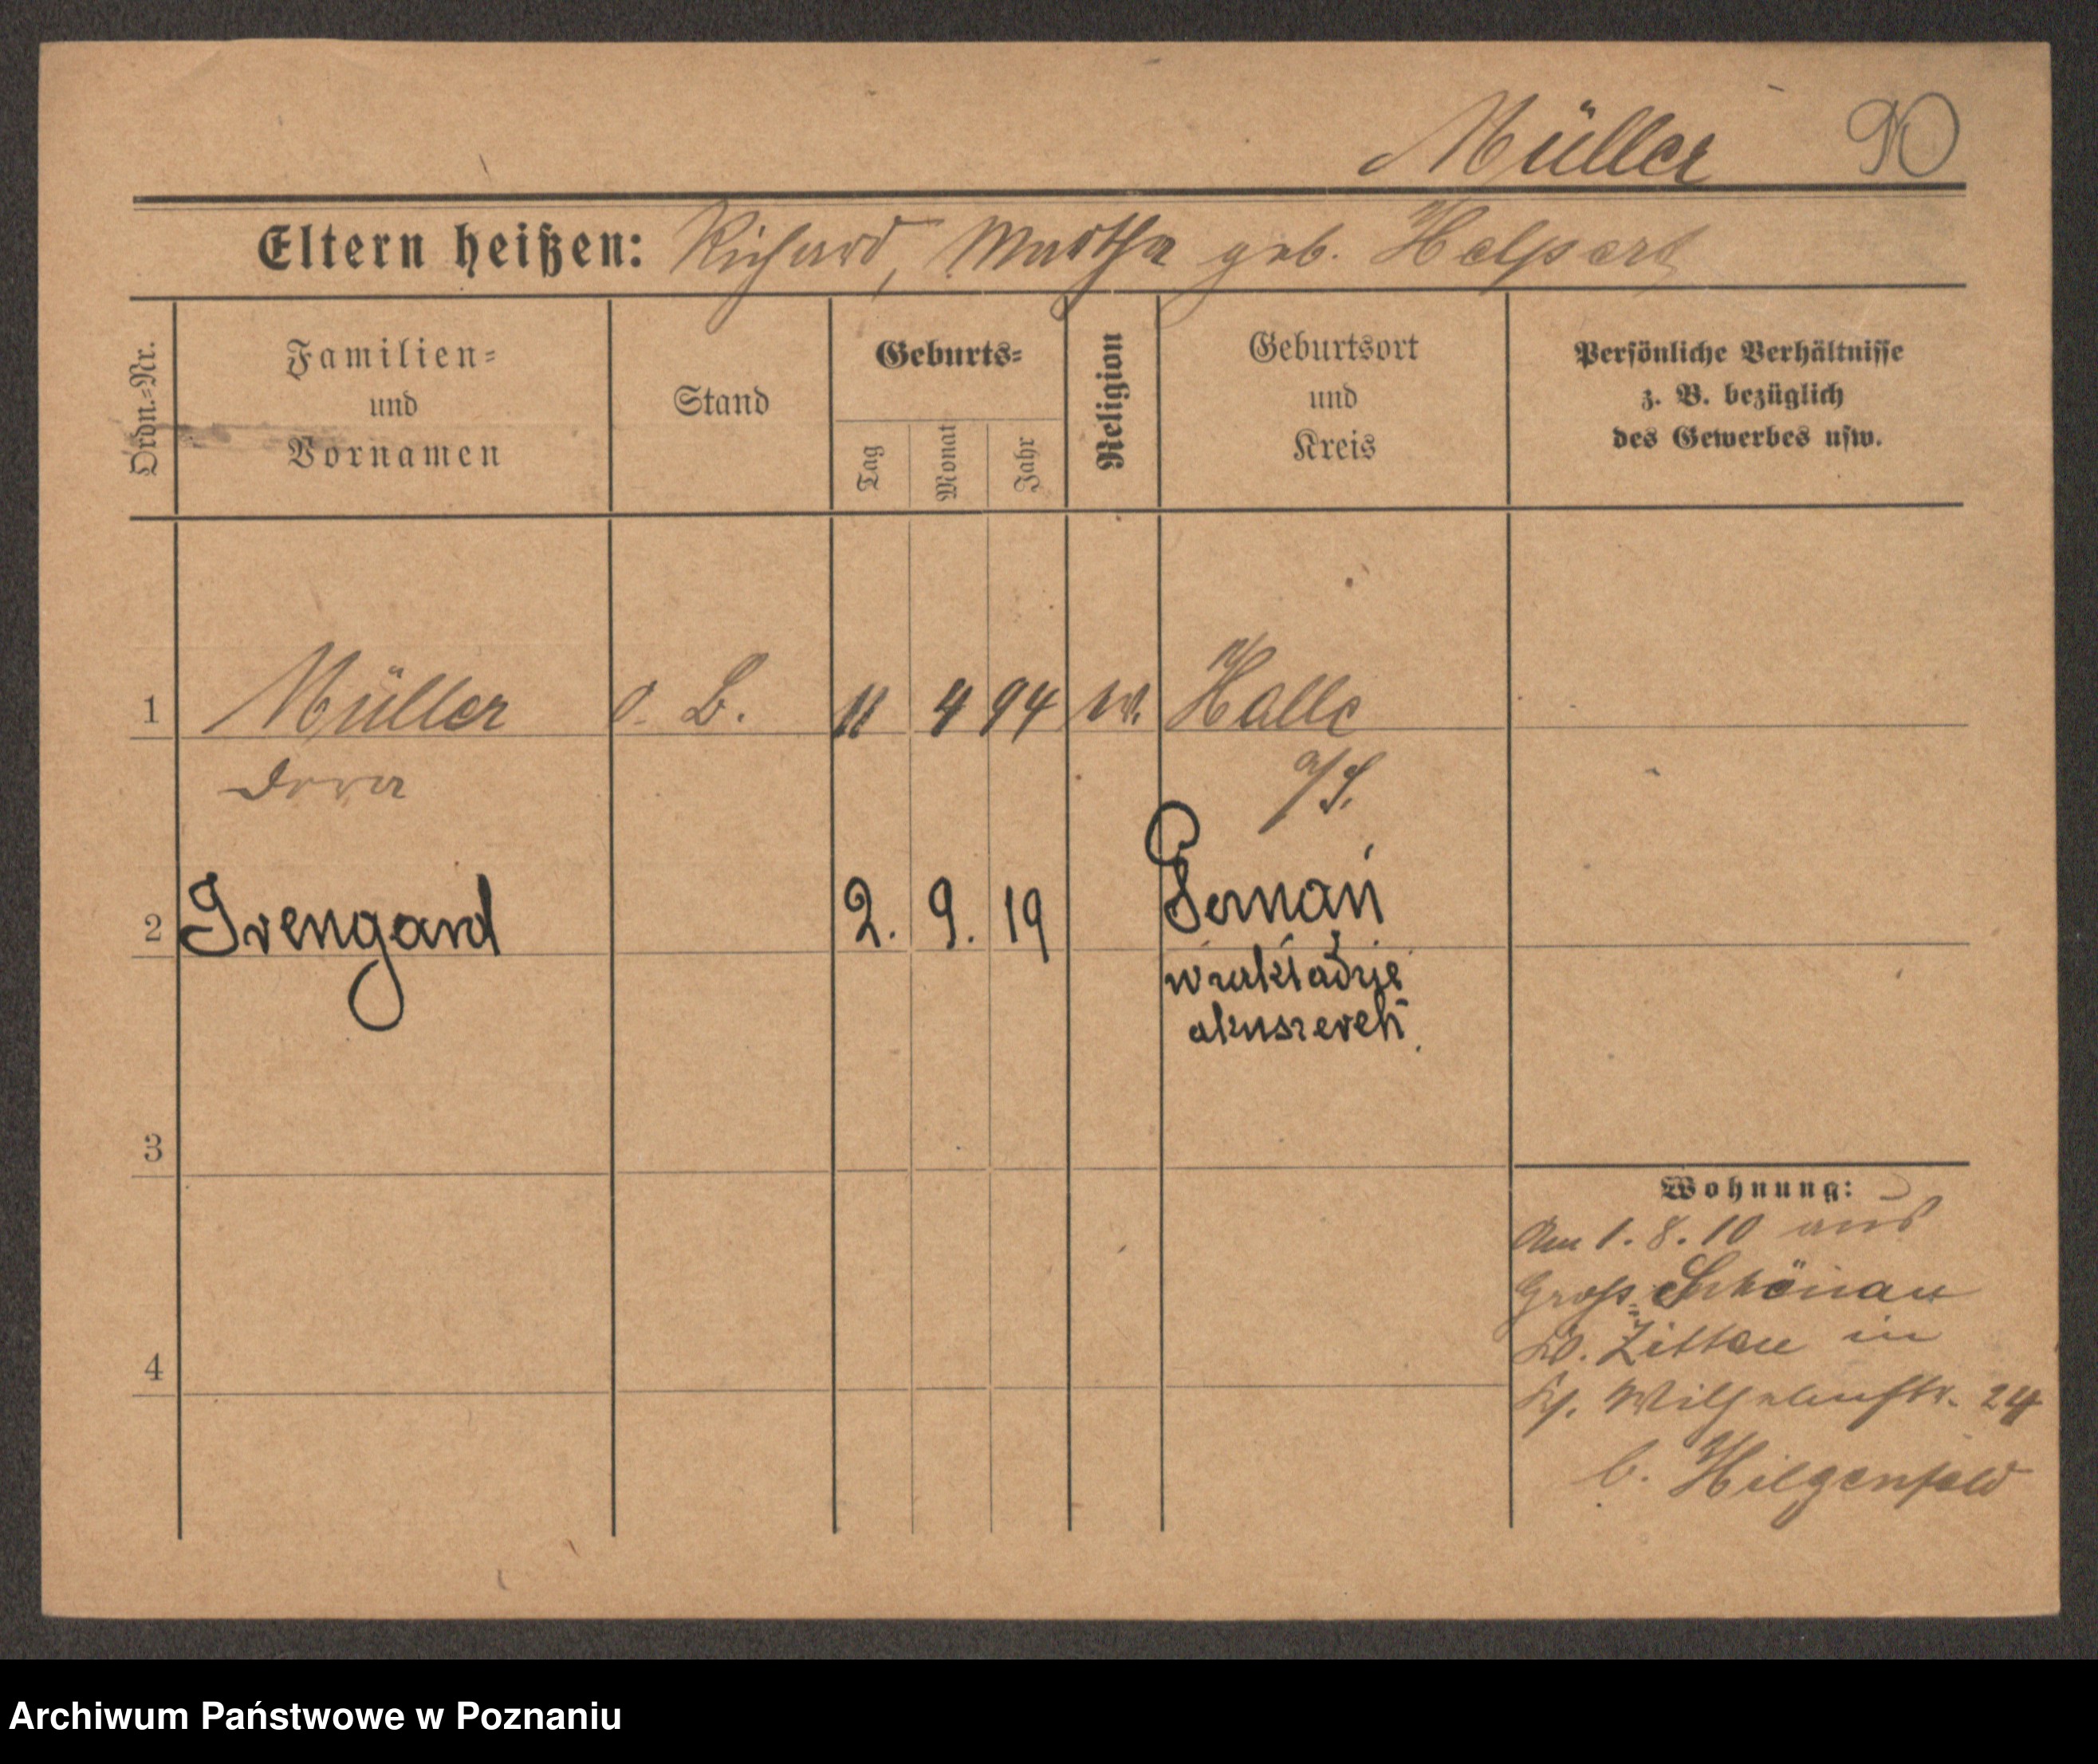 Müller 90
Eltern heißen: Richard, Martha geb. Helpert
Ordn.=Nr.
Familien=
und
Vornamen
Stand
Geburts=
Tag
Monat
Jahr
Religion
Geburtsort
und
Kreis
Persönliche Verhältnisse
z. B. bezüglich
des Gewerbes usw.
1 Müller o. B. 11 4 94 Halle
Dora a/S.
2 Irengard 2. 9. 19 Poznań
w zakładzie
akuszerek.
3
4
Wohnung:
Am 1. 8. 10 aus
Groß=Schönau
Zittau in
Wilhelmstr. 24
b. Hilgenfeld
Archiwum Państwowe w Poznaniu